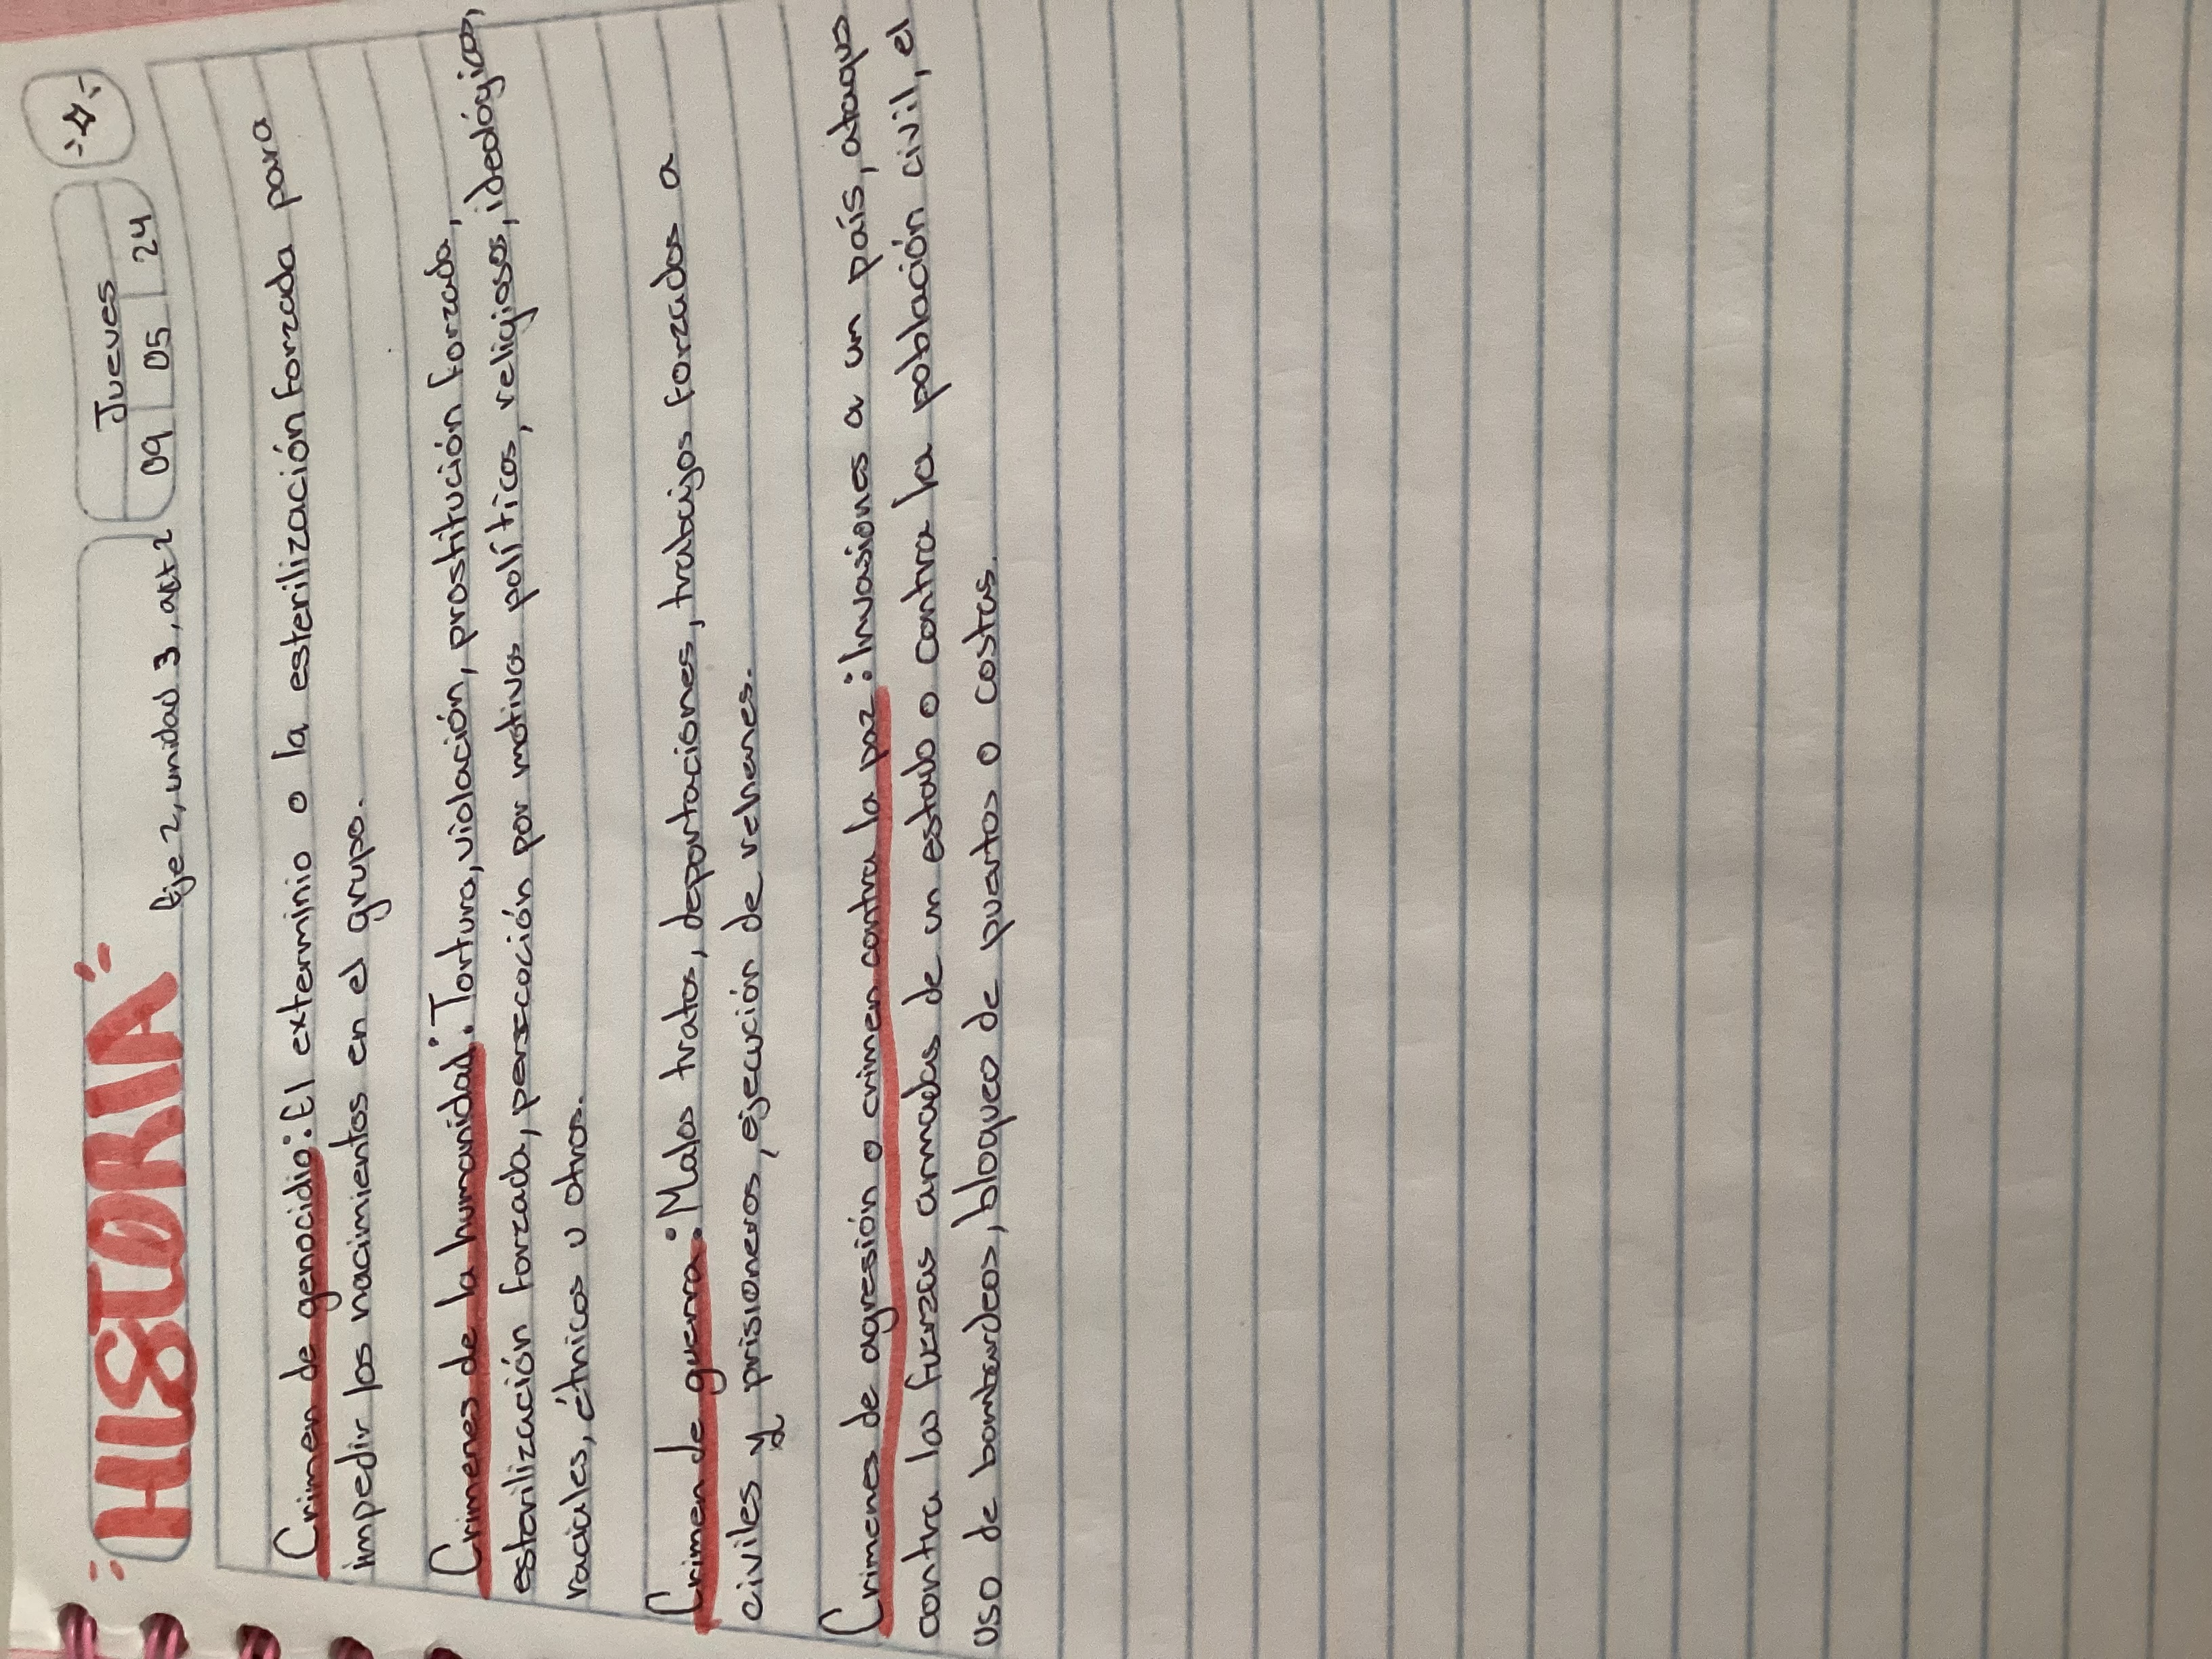 HISTORIA
Eje 2, unidad 3, act 2
Jueves
09 05 24
Crimen de genocidio: El exterminio o la esterilización forzada para
impedir los nacimientos en el grupo.
Crimenes de la humanidad: Tortura, violación, prostitución forzada,
esterilización forzada, persecución por motivos políticos, religiosos, ideológicos,
raciales, étnicos u otros.
Crimen de guerra: Malos tratos, deportaciones, trabajos forzados a
civiles y prisioneros, ejecución de rehenes.
Crimenes de agresión o crimen contra la paz: Invasiones a un país, ataques
contra las fuerzas armadas de un estado o contra la población civil, el
uso de bombardeos, bloqueo de puertos o costas.